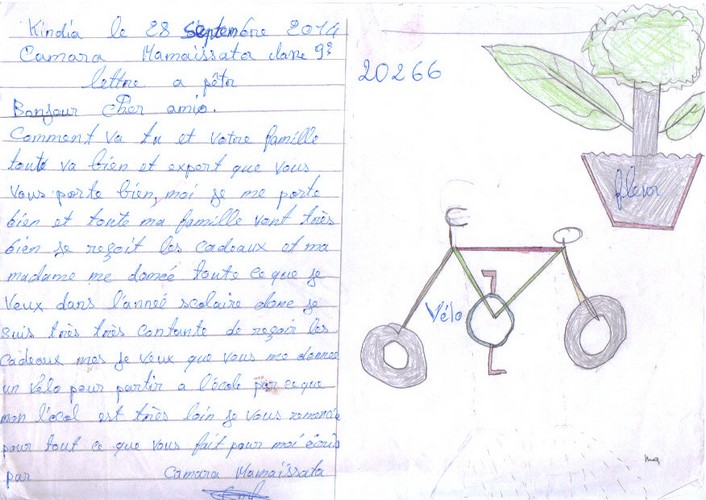 Kindia le 28 septembre 2014
Camara Mamaissata clase 9e
lettre a pêtr
Bonjour cher amio.
Comment va tu et votre famille
toute va bien et expert que vous
vous porte bien, moi je me porte
bien et toute ma famille vont très
bien je reçoit les cadeaux et ma
madame me donceé toute ce que je
veux dans l'anneé scolaire donc je
suis très très contante de reçoir les
cadeaux mes je veux que vous me donner
un vélo pour partir a l'école par ce que
mon l'ecol est très loin je vous remencie
pour tout ce que vous fait pour moi écris
par Camara Mamaissata
20266
fleur
Vélo